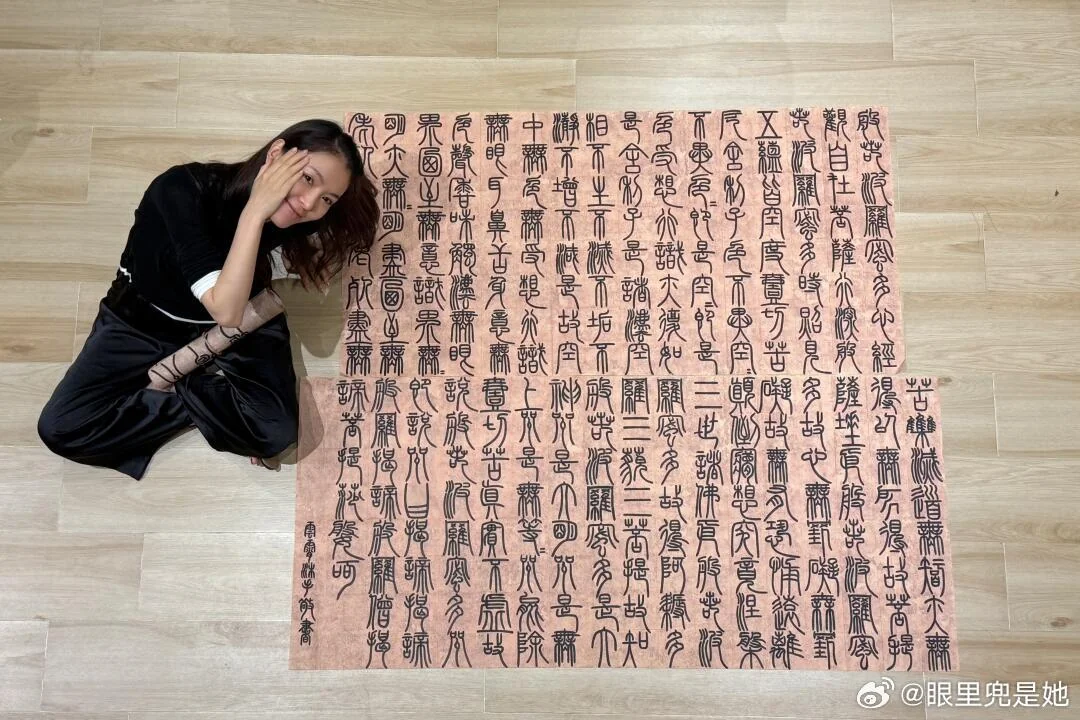 般若波羅蜜多心經
觀自在菩薩行深般
若波羅蜜多時照見
五蘊皆空度壹切苦
厄舍利子色不異空=
不異色=即是空=即是
色受想行識亦復如
是舍利子是諸法空
相不生不滅不垢不
淨不增不減是故空
中無色無受想行識
無眼耳鼻舌身意無
色聲香味觸法無眼
界乃至無意識界無=
明亦無明盡乃至無
老死老死盡無
苦集滅道無智亦無
得以無所得故菩提
薩埵依般若波羅蜜
多故心無罣礙無罣
礙故無有恐怖遠離
顛倒夢想究竟涅槃
三世諸佛依般若波
羅蜜多故得阿耨多
羅三藐三菩提故知
般若波羅蜜多是大
神咒是大明咒是無
上咒是無等=咒能除
壹切苦真實不虛故
說般若波羅蜜多咒
即說咒曰揭諦揭諦
般羅揭諦般羅僧揭
諦菩提莎婆呵
沐手敬書
@眼里兜是她